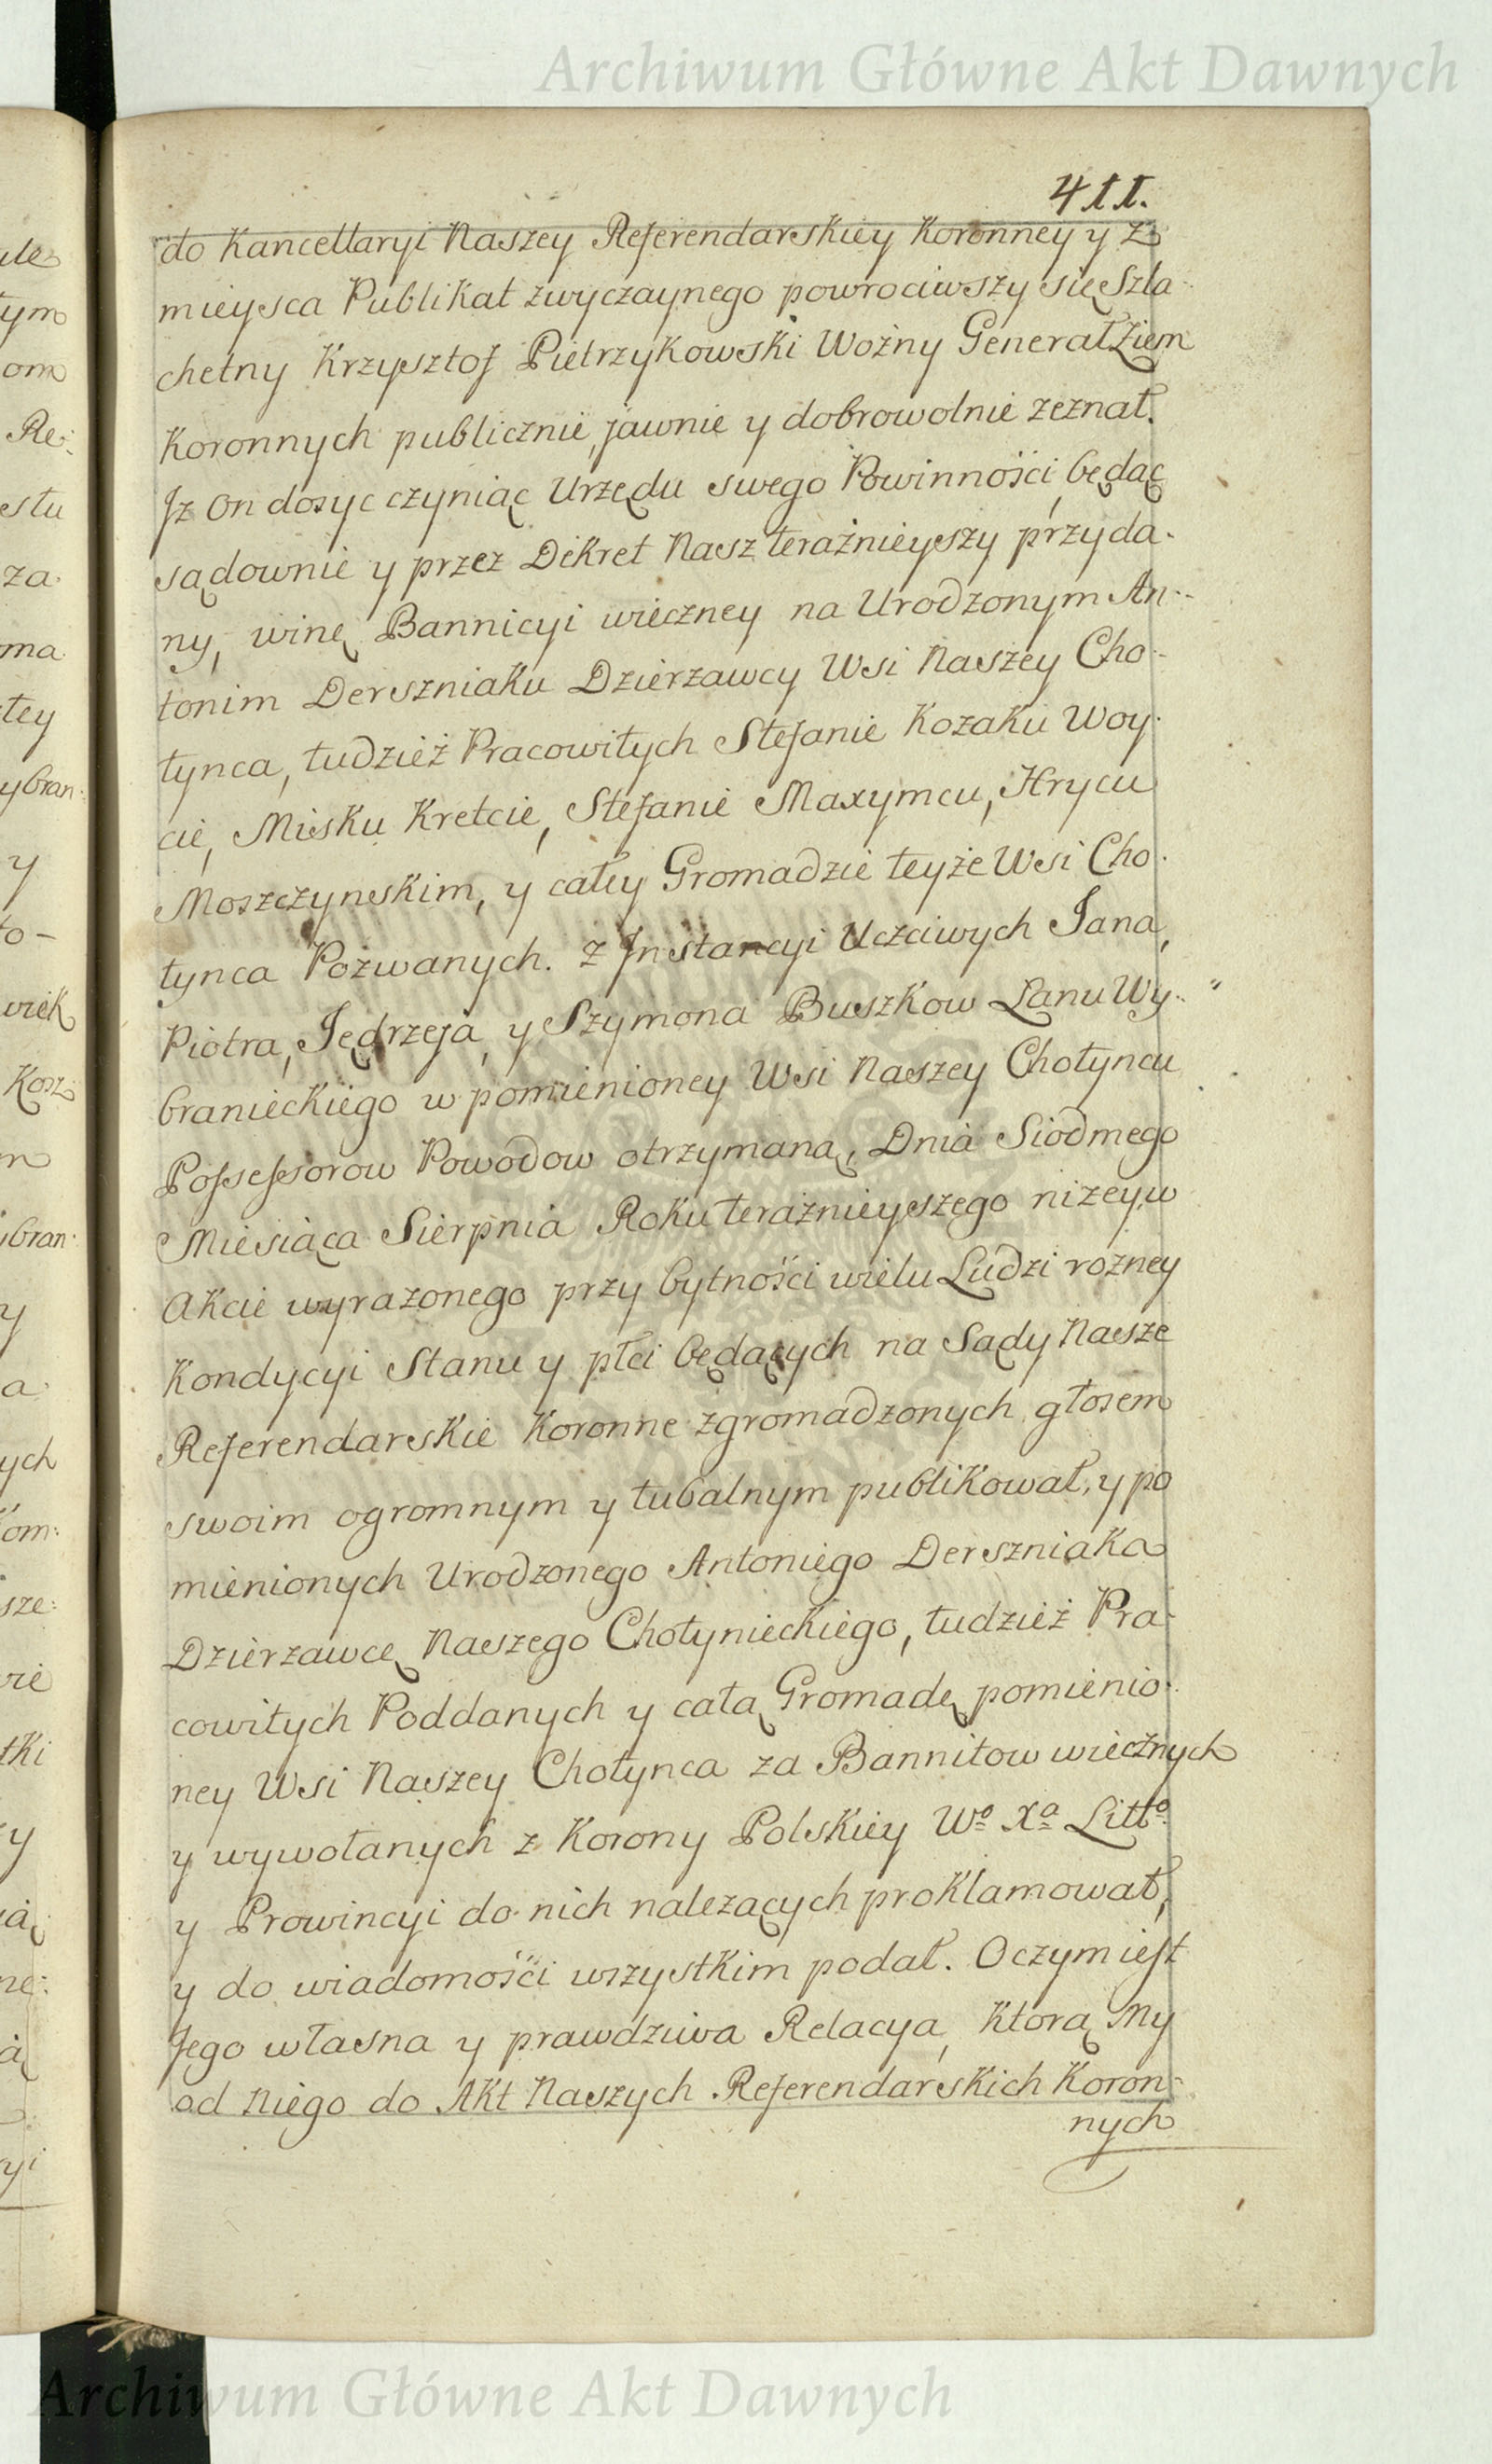 Archiwum Główne Akt Dawnych
411.
do Kancellaryi Naszey Referendarskiey Koronney y z
mieysca Publikat zwyczaynego powrociwszy się Szla-
chetny Krzysztof Pietrzykowski Woźny Generał Ziem
Koronnych publicznie, jawnie y dobrowolnie zeznał.
Jz on dosyc czyniąc Urzędu swego Powinności, będąc
sądownie y przez Dekret Nasz teraźnieyszy przyda-
ny, winę Bannicyi wieczney na Urodzonym An-
tonim Derszniaku Dzierzawcy Wsi Naszey Cho-
tynca, tudzież Pracowitych Stefanie Kozaku Woy-
cie, Misku Kretcie, Stefanie Maxymcu, Hrycu
Moszczynskim, y całey Gromadzie teyże Wsi Cho-
tynca Pozwanych. Z Jnstancyi Uczciwych Jana,
Piotra, Jędrzeja, y Szymona Buszkow Łanu Wy-
branieckiego w pomienioney Wsi Naszey Chotyncu
Possessorow Powodow otrzymaną, Dnia Siodmego
Miesiąca Sierpnia Roku teraźnieyszego nizey w
Akcie wyrazonego przy bytności wielu Ludzi rozney
Kondycyi Stanu y płci będących na Sądy Nasze
Referendarskie Koronne zgromadzonych głosem
swoim ogromnym y tubalnym publikował, y po
mienionych Urodzonego Antoniego Derszniaka
Dzierzawcę Naszego Chotynieckiego, tudzież Pra-
cowitych Poddanych y całą Gromadę pomienio-
ney Wsi Naszey Chotynca za Bannitow wiecznych
y wywołanych z Korony Polskiey Wo Xa Litto
y Prowincyi do nich nalezących proklamował,
y do wiadomości wszystkim podał. O czym iest
Jego własna y prawdziwa Relacya, ktorą My
od Niego do Akt Naszych Referendarskich Koron-
nych
Archiwum Główne Akt Dawnych